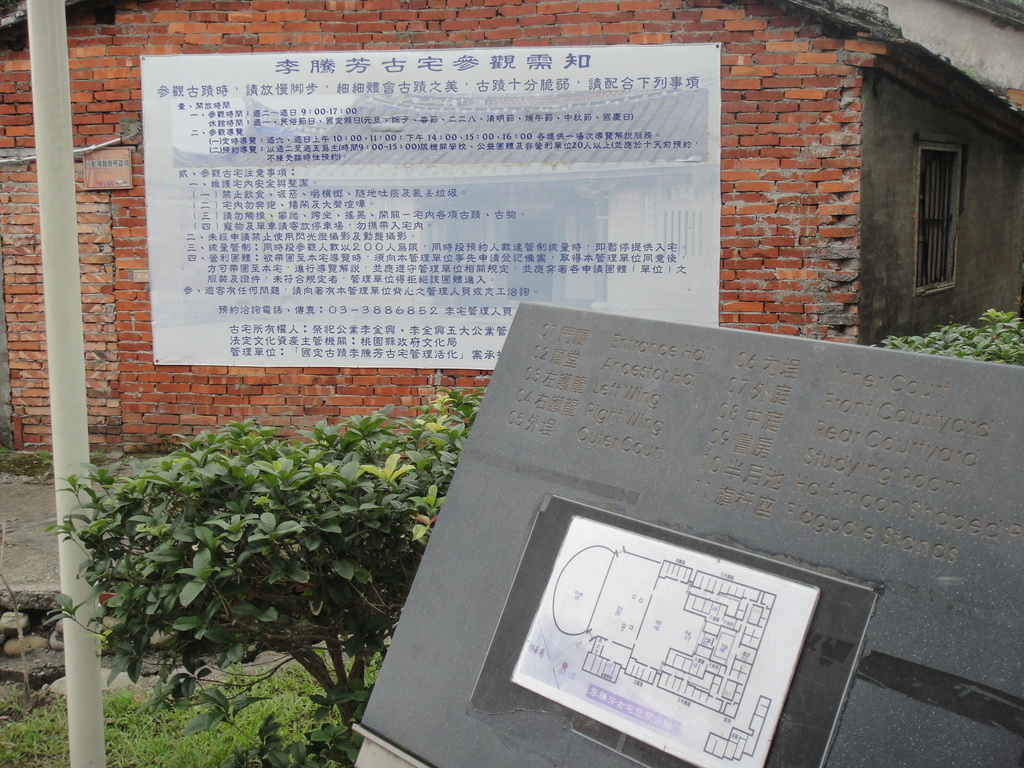 李騰芳古宅參觀需知
參觀古蹟時，請放慢腳步，細細體會古蹟之美，古蹟十分脆弱，請配合下列事項
壹、開放時間
一、參觀時間：週二～週日 9:00-17:00
休館時間：週一、民俗節日、國定假日(元旦、除夕、春節、二二八、清明節、端午節、中秋節、國慶日)
二、參觀導覽
(一)定時導覽：週六、週日上午10:00、11:00；下午14:00、15:00、16:00 各提供一場次導覽解說服務。
(二)預約導覽：以週二至週五為主(時間9:00~15:00)限機關學校、公益團體及非營利單位20人以上(並應於十天前預約，
不接受臨時性預約)
貳、參觀古宅注意事項：
一、維護宅內安全與整潔。
(一)禁止飲食、吸菸、嚼檳榔、隨地吐痰及亂丟垃圾。
(二)宅內勿奔跑、嬉鬧及大聲喧嘩。
(三)請勿觸摸、攀爬、跨坐、搖晃、開關一宅內各項古蹟、古物。
(四)寵物及單車請寄放停車場，勿攜帶入宅內。
二、未經申請禁止使用閃光燈攝影及動態攝影。
三、總量管制：同時段參觀人數以200人為限，同時段預約人數達管制總量時，即暫停提供入宅。
四、營利團體：欲帶團至本宅導覽時，須向本管理單位事先申請登記備案，取得本管理單位同意後，
方可帶團至本宅，進行導覽解說，並應遵守管理單位相關規定，並應穿著各申請團體(單位)之
服裝及證件，未符合規定者，管理單位得拒絕該團體進入。
參、遊客有任何問題，請向著有本管理單位背心之管理人員或志工洽詢。
預約洽詢電話、傳真：03-3886852 李宅管理人員
古宅所有權人：祭祀公業李金興、李金興五大公業管
法定文化資產主管機關：桃園縣政府文化局
管理單位：「國定古蹟李騰芳古宅管理活化」案承
01 門廳 Entrance Hall
02 廳堂 Ancestor Hall
03 左護龍 Left Wing
04 右護龍 Right Wing
05 外埕 Outer Court
06 內埕 Inner Court
07 外庭 Front Courtyard
08 中庭 Rear Courtyard
09 書房 Studying Room
10 半月池 Half-moon Shaped P
11 旗杆座 Flagpole Stands